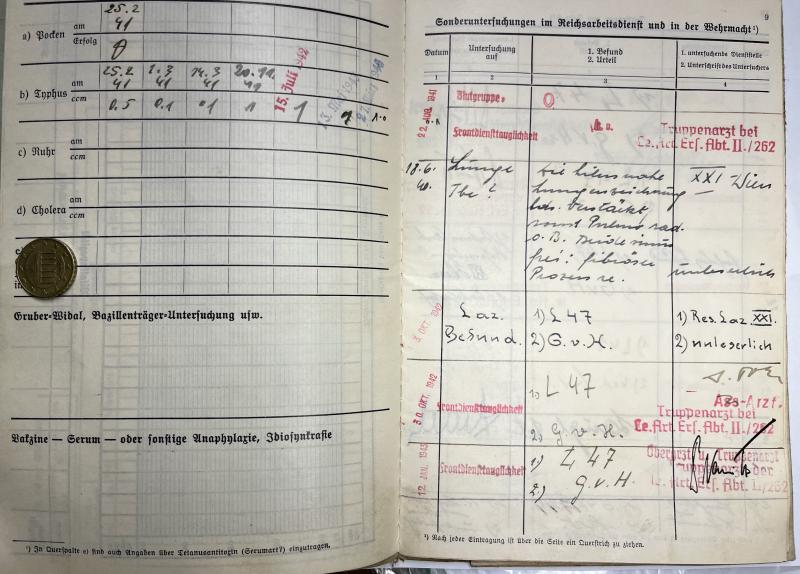 a) Pocken
am
Erfolg
25.2
41
b) Typhus
am
ccm
25.2 2.3 14.3 20.11
41 41 41 41
0.5 0.1 1 1 1
15. Juli 1942
c) Ruhr
am
ccm
d) Cholera
am
ccm
Gruber-Widal, Bazillenträger-Untersuchung usw.
Vakzine — Serum — oder sonstige Anaphylaxie, Idiosynkrasie
¹) In Querspalte e) sind auch Angaben über Tetanusantitoxin (Serumart?) einzutragen.
9
Sonderuntersuchungen im Reichsarbeitsdienst und in der Wehrmacht¹)
Datum
Untersuchung
auf
1. Befund
2. Urteil
1. untersuchende Dienststelle
2. Unterschrift des Untersuchers
1 2 3 4
1941
Blutgruppe:
O
Frontdiensttauglichkeit
Truppenarzt bei
Le. Art. Ers. Abt. II./262
18.6.
40.
Lunge
Tbc?
die hilusnahe
Lungenzeichnung
bds. verstärkt,
sonst Pulmo rad.
o. B. Sinus
frei: fibröser
Prozess re.
XXI Wien
unleserlich
OKT. 1942
Laz.
Befund.
1) L 47
2) G.v.H.
1) Res. Laz. XXI.
2) unleserlich
30. OKT. 1942
Frontdiensttauglichkeit
1) L 47
2) G.v.H.
Ass-Arzt.
Truppenarzt bei
Le. Art. Ers. Abt. II./262
12. JAN. 1943
Frontdiensttauglichkeit
1) L 47
2) G.v.H.
Oberarzt u. Truppenarzt
Truppenarzt der
Le. Art. Ers. Abt. II/262
¹) Nach jeder Eintragung ist über die Seite ein Querstrich zu ziehen.